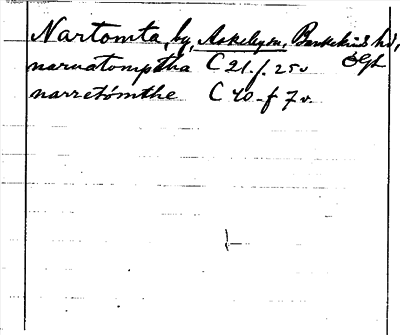 Nartomta, by, Askeby sn, Bankekinds hd,
ÖGtl
naruatomptha C 21. f. 25 v
narretomthe C 40 - f 7 v.